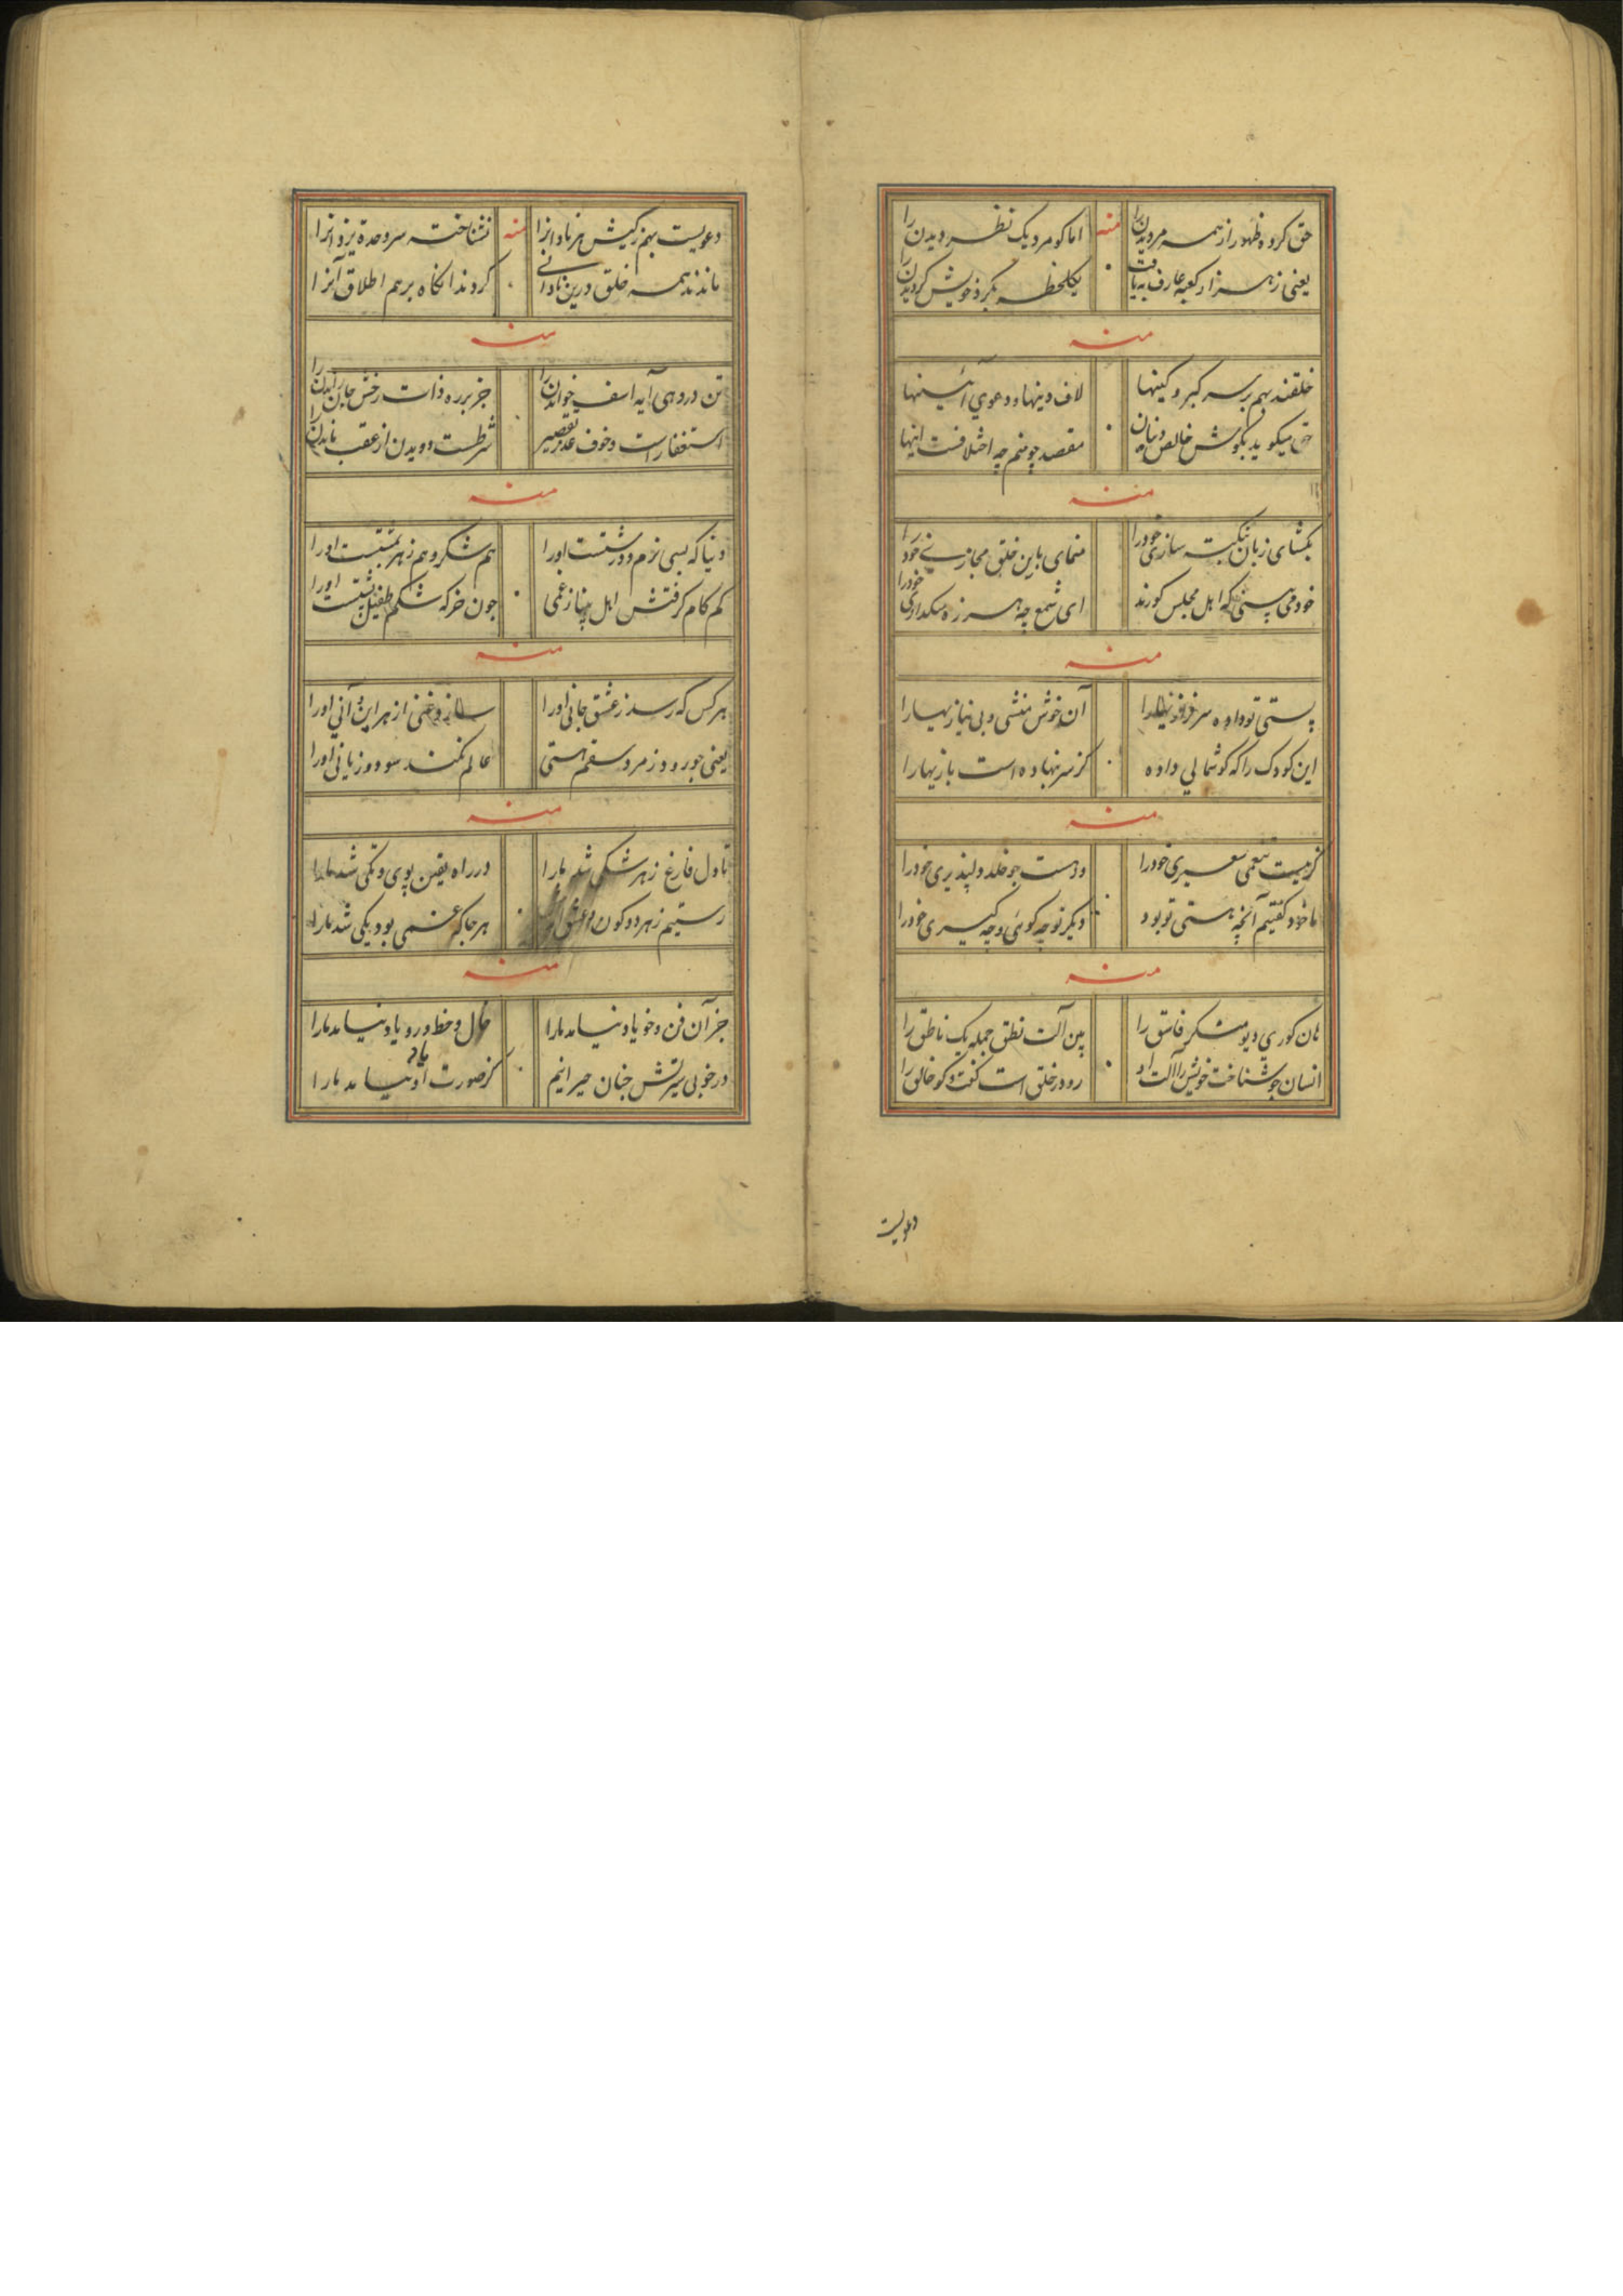 حق کرده ظهور از همه مردیدن را منه اما کو مرد یک نظر دیدن را
یعنی ز هزار کعبه عارف به یافت یکلحظه بگرد خویش گردیدن را
منه
خلقند بهم بر سر کبر و کینها لاف دینها و دعوی آئینها
حق میگوید بگوش خالص دینان مقصد چو منم چه اختلافست اینها
منه
بگشای زبان نکته سازی خود را منمای باین خلق مجازی خود را
خود می بینی که اهل مجلس کورند ای شمع چه هرزه میگدازی خود را
منه
پستی تو داده سر آن خوش منشی و بی نیازیها را
این کودک را که گوشمالی داده کز سر نهاده است بازیها را
منه
گر نیست غمی سعیری خود را ورهست چو خلد دلپذیری خود را
ما خود گفتیم آنچه هستی تو بود دیگر تو چه گوئی و چه گیری خود را
منه
هان کوری دیو منکر فاسق را بین آلت نطق جمله یک ناطق را
انسان چو شناخت خویش را آلت او رو در خلق است گفت و گو خالق را
دعویست
دعویست بهم ز کیش هر نادانرا منه نشناخته سر وحدة یزدانرا
ماندند همه خلق درین نادانی کردند انگاه بر هم اطلاق آنرا
منه
تن در دهی آیه اسف خواندن را جز بر ره ذات رخش جان راندن را
استغفار است و خوف عذر تقصیر شرطست دویدن از عقب ماندن را
منه
دنیا که بسی نرم و درشتست اورا هم شکر و هم زهر بمشتست اورا
کم کام گرفتش اهل ز غمی چون خر که شکم طفیل پشتست اورا
منه
هر کس که رسد ز عشق جانی اورا سازد غنی از هر این و آنی اورا
یعنی چو رود ز مرد سقم هستی عالم نکند سود و زیانی اورا
منه
تا دل فارغ ز هر شکی شد مارا در راه یقین پوی و تکی شد مارا
رستیم ز هر دو کون هر جا که غمی بود یکی شد مارا
منه
جز آن فن و خو یاد نیامد مارا خال و خط و رو یاد نیامد مارا
در خوبی سیرتش چنان حیرانیم کز صورت او یاد نیامد مارا